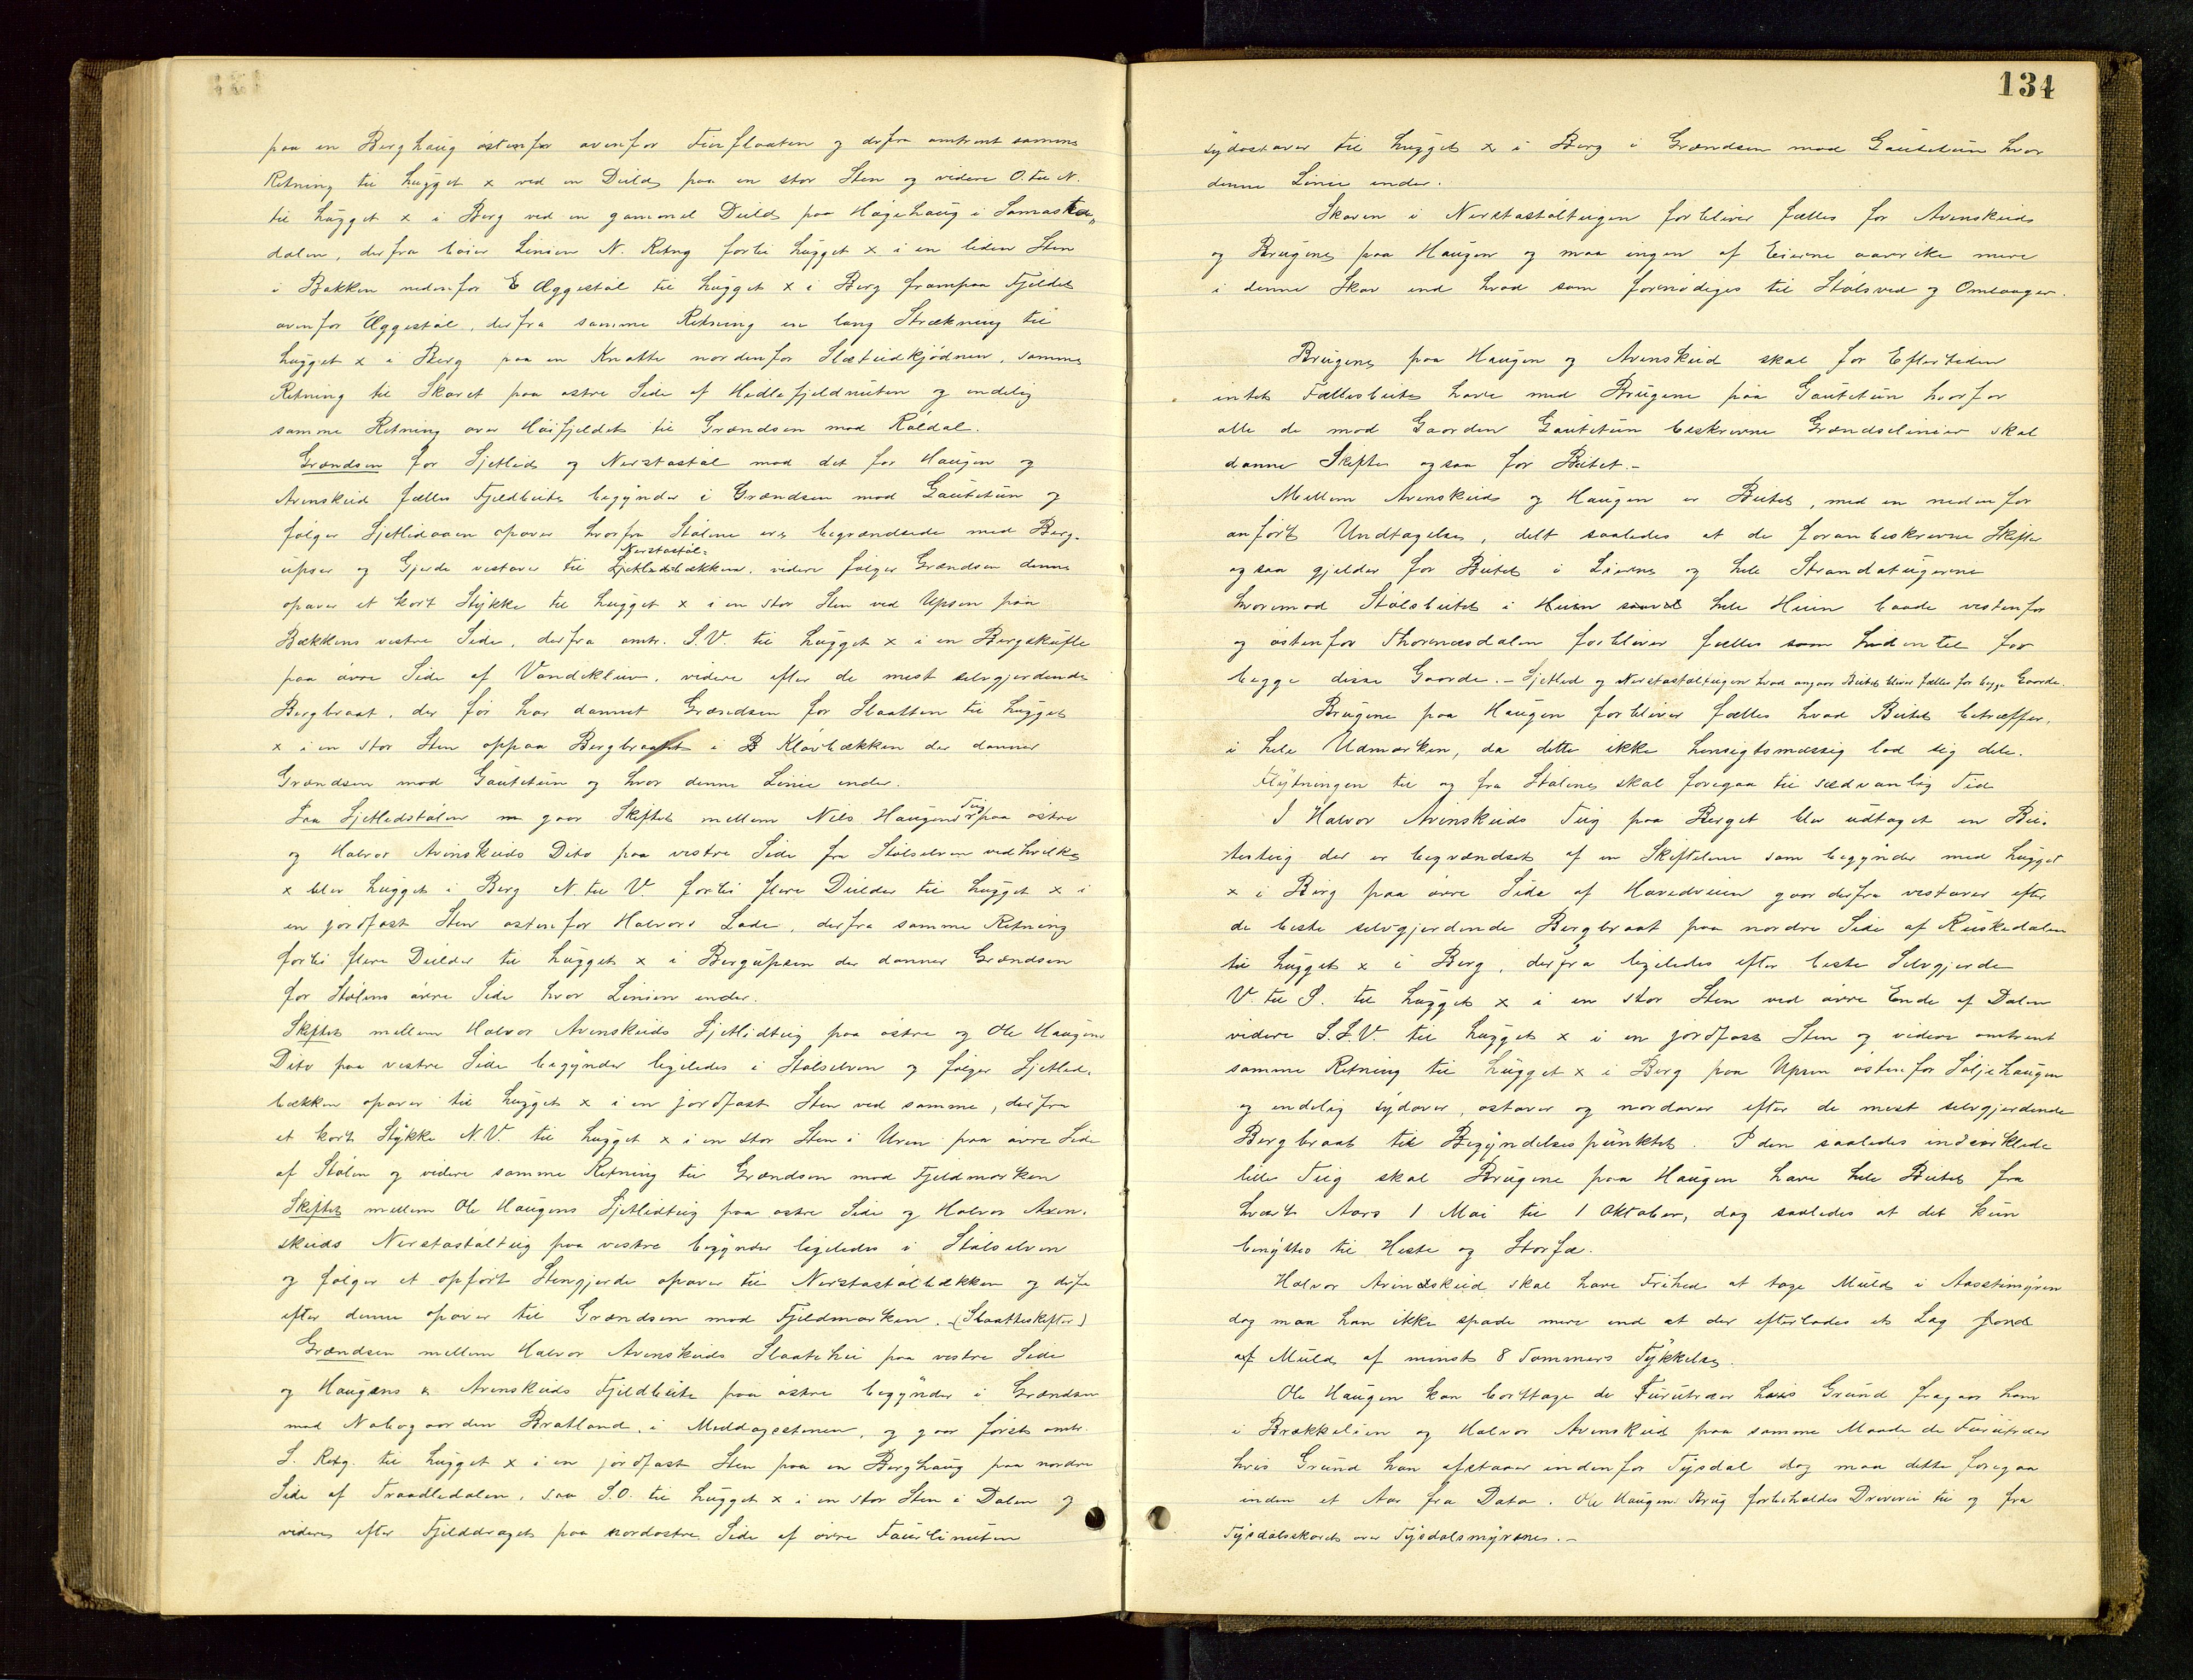 paa en Berghaug østenfor ovenfor Finflaaten og derfra omtrent samme
Retning til hugget x ved en Duld paa en stor Sten og videre O. til N.
til hugget x i Berg ved en gammel Duld paa Høgehaug i Samasta-
dalen, derfra bøier Linien N. Retng forbi hugget x i en liden Sten
i Bakken nedenfor Æggestøl til hugget x i Berg frampaa Fjeldet
ovenfor Æggestøl, derfra samme Retning en lang Strækning til
hugget x i Berg paa en Knatte nordenfor Slætudkjødnen, samme
Retning til Skaret paa østre Side af Hedlefjeldnuten og endelig
samme Retning over Høifjeldet til Grændsen mod Røldal.
Grændsen for Sjetlid og Nerstastøl mod det for Haugen og
Avenskud fælles Fjeldbeite begynder i Grændsen mod Gautetun og
følger Sjetlidaaen opover hvorfra Stølene er begrændsede med Berg-
upser og Gjerde vestover til Nerstastøl-bækken, videre følger Grændsen denne
opover et kort Stykke til hugget x i en stor Sten ved Upsen paa
Bækkens vestre Side, derfra omtr. S.V. til hugget x i en Bergskufle
paa øvre Side af Vandekluv, videre efter de mest selvgjerdende
Bergbraat, der før har dannet Grændsen for Slaatten til hugget
x i en stor Sten oppaa Bergbraatet i Kløvbækken der danner
Grændsen mod Gautetun og hvor denne Linie ender.
Paa Sjetlidstølen gaar Skiftet mellem Nils Haugens Teig paa østre
og Halvor Avinskuds Dito paa vestre Side fra Stølselven ved hvilke
x blev hugget i Berg N. til V. forbi flere Dulder til hugget x i
en jordfast Sten østenfor Halvors Lade, derfra samme Retning
forbi flere Dulder til hugget x i Bergupsen der danner Grændsen
for Stølens øvre Side hvor Linien ender.
Skiftet mellem Halvor Avenskuds Sjetlidteig paa østre og Ole Haugens
Dito paa vestre Side begynder ligeledes i Stølselven og følger Sjetlid-
bækken opover til hugget x i en jordfast Sten ved samme, derfra
et kort Stykke N.V. til hugget x i en stor Sten i Uren paa øvre Side
af Stølen og videre samme Retning til Grændsen mod Fjeldmarken
Skiftet mellem Ole Haugens Sjetlidteig paa østre Side og Halvor Aven-
skuds Nerstastølteig paa vestre begynder ligeledes i Stølselven
og følger et opført Stengjerde opover til Nerstastølbækken og derfra
efter denne opover til Grændsen mod Fjeldmarken. (Slaatteskifter)
Grændsen mellem Halvor Avenskuds Slaatehei paa vestre Side
og Haugens & Avenskuds Fjeldbeite paa østre begynder i Grændsen
mod Nabogaarden Bratland, i Middagsstenen, og gaar først omtr.
S. Retg. til hugget x i en jordfast Sten paa en Berghaug paa nordre
Side af Traadledalen, saa S.O. til hugget x i en stor Sten i Dalen og
videre efter Fjelddraget paa nordøstre Side af øvre Faurlinuten
134
sydøstover til hugget x i Berg i Grændsen mod Gautetun hvor
denne Linie ender.
Skoven i Nerstastølteigen forbliver fælles for Avenskuds
og Brugene paa Haugen og maa ingen af Eierne aavirke mere
i denne Skov end hvad som fornødiges til Stølsved og Omlaager.
Brugene paa Haugen og Avenskud skal for Eftertiden
intet Fællesbeite have med Brugene paa Gautetun hvorfor
alle de mod Gaarden Gautetun beskrevne Grændselinier skal
danne Skifte ogsaa for Beitet.-
Mellem Avenskud og Haugen er Beitet, med en nedenfor
anført Undtagelse, delt saaledes at de foranbeskrevne Skifter
ogsaa gjelder for Beitet i Lierne og hele Strandateigerne
hvorimod Stølsbeitet i Heien hele Heien baade vestenfor
og østenfor Thornæsdalen forbliver fælles som hidentil for
begge disse Gaarde.- Sjetlid og Nerstastølteigen hvad angaar Beitet bliver fælles for begge Gaarde.
Brugene paa Haugen forbliver fælles hvad Beitet betræffer,
i hele Udmarken, da dette ikke hensigtsmæssig lod sig dele.
Flytningen til og fra Stølene skal foregaa til sædvanlig Tid.
I Halvor Avinskuds Teig paa Berget blev udtaget en Bei-
testeig der er begrændset af en Skiftelinie som begynder med hugget
x i Berg paa øvre Side af Hovedveien gaar derfra vestover efter
de beste selvgjerdende Bergbraat paa nordre Side af Ruskedalen
til hugget x i Berg, derfra ligeledes efter beste Selvgjerde
V. til S. til hugget x i en stor Sten ved øvre Ende af Dalen
videre S.S.V. til hugget x i en jordfast Sten og videre omtrent
samme Retning til hugget x i Berg paa Upsen østenfor Soljehaugen
og endelig sydover, østover og nordover efter de mest selvgjerdende
Bergbraat til Begyndelsespunktet. I den saaledes indsirklede
lille Teig skal Brugene paa Haugen have hele Beitet fra
hvært Aars 1 Mai til 1 Oktober, dog saaledes at det kun
benyttes til Heste og Storfæ.
Halvor Avindskud skal have Frihed at tage Muld i Aasstimyren
dog maa han ikke spade mere end at der efterlades et Lag
af Muld af minst 8 Tommers Tykkelse.
Ole Haugen kan borttage de Furutrær hvis Grund fragaar ham
i Brækkelien og Halvor Avenskud paa samme Maade de Furutrær
hvis Grund han afstaaer indenfor Tysdal dog maa dette foregaa
inden et Aar fra Dato. Ole Haugens Brug forbeholdes Dreverei til og fra
Tysdalsskaret over Tysdalsmyrene.-